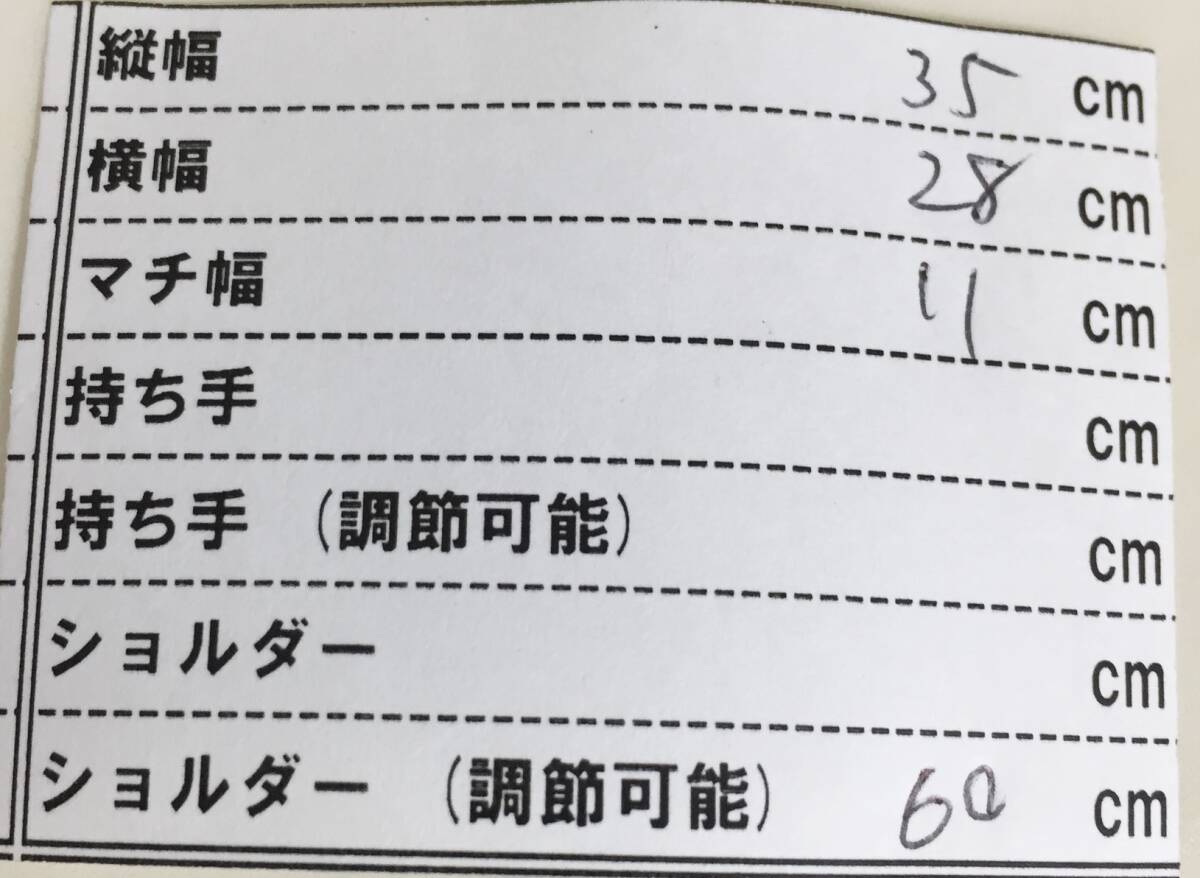 縦幅 35 cm
横幅 28 cm
マチ幅 11 cm
持ち手 cm
持ち手 (調節可能) cm
ショルダー cm
ショルダー (調節可能) 60 cm